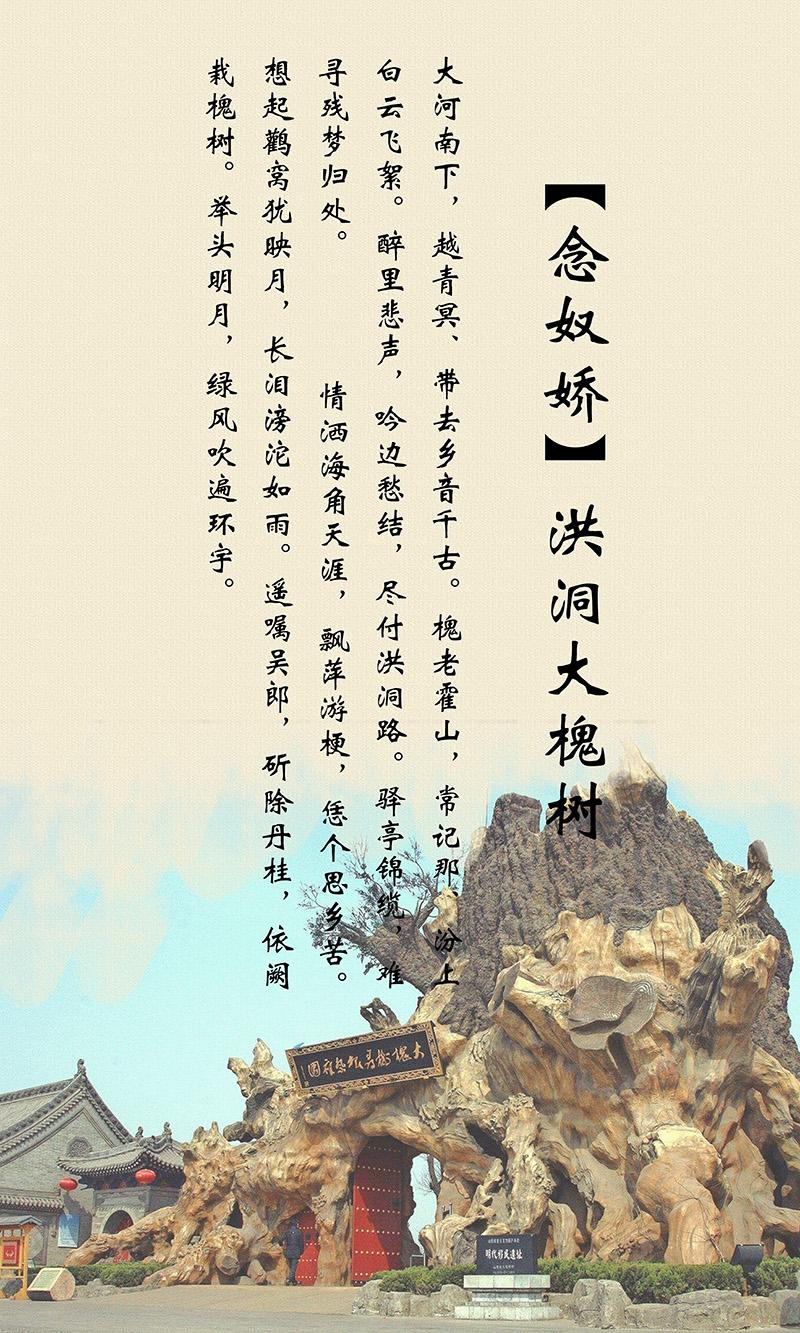 【念奴娇】 洪洞大槐树
大河南下，越青冥、带去乡音千古。槐老霍山，常记那、汾上
白云飞絮。醉里悲声，吟边愁结，尽付洪洞路。驿亭锦缆，难
寻残梦归处。 情洒海角天涯，飘萍游梗，恁个思乡苦。
想起鹳窝犹映月，长泪滂沱如雨。遥嘱吴郎，斫除丹桂，依阙
栽槐树。举头明月，绿风吹遍环宇。
大槐树寻根祭祖园
明代移民遗址